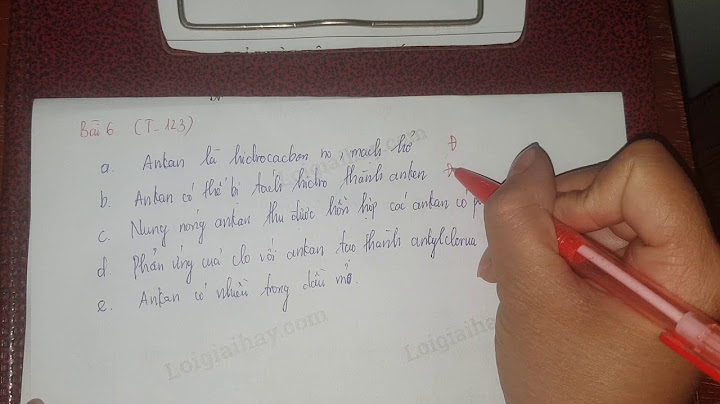 Bài 6 (T-123)
a. Ankan là hidrocacbon no, mạch hở Đ
b. Ankan có thể bị tách hidro thành anken Đ
c. Nung nóng ankan thu được hỗn hợp các ankan có
d Phản ứng của clo với ankan tạo thành ankylclorua
e. Ankan có nhiều trong dầu mỏ.
Loigiaihay.com
Loigiaihay.com
Loigiaihay.com